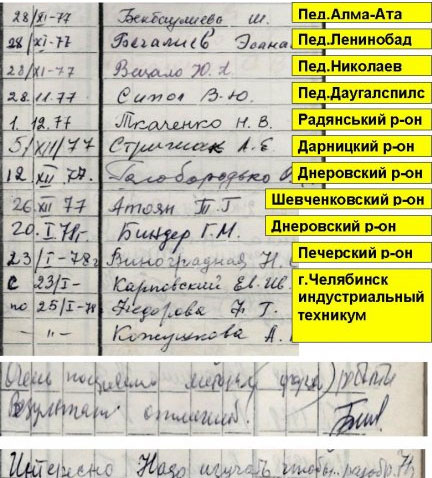 28/XI-77 Бекбаулиева Ш. Пед.Алма-Ата
28/XI-77 Бегалиев Пед.Ленинобад
28/XI-77 Ю. А. Пед.Николаев
28.11.77 В.Ю. Пед.Даугалспилс
1.12.77 Ткаченко Н. В. Радянський р-он
5/XII/77 А. Е. Дарницкий р-он
12 XII 77. Голобородько Днеровский р-он
26 XII 77 Атоян Т. Г Шевченковский р-он
20.I.78г. Биндер Г.М. Днеровский р-он
23/I-78г Виноградная Н. Печерский р-он
с 23/I- Карповский Ев. Ив. г.Челябинск
по 25/I-78 Федорова Г. индустриальный
-"- Кожушкова А. техникум
Очень работы
Результаты отличные.
Интересно Надо изучать чтобы